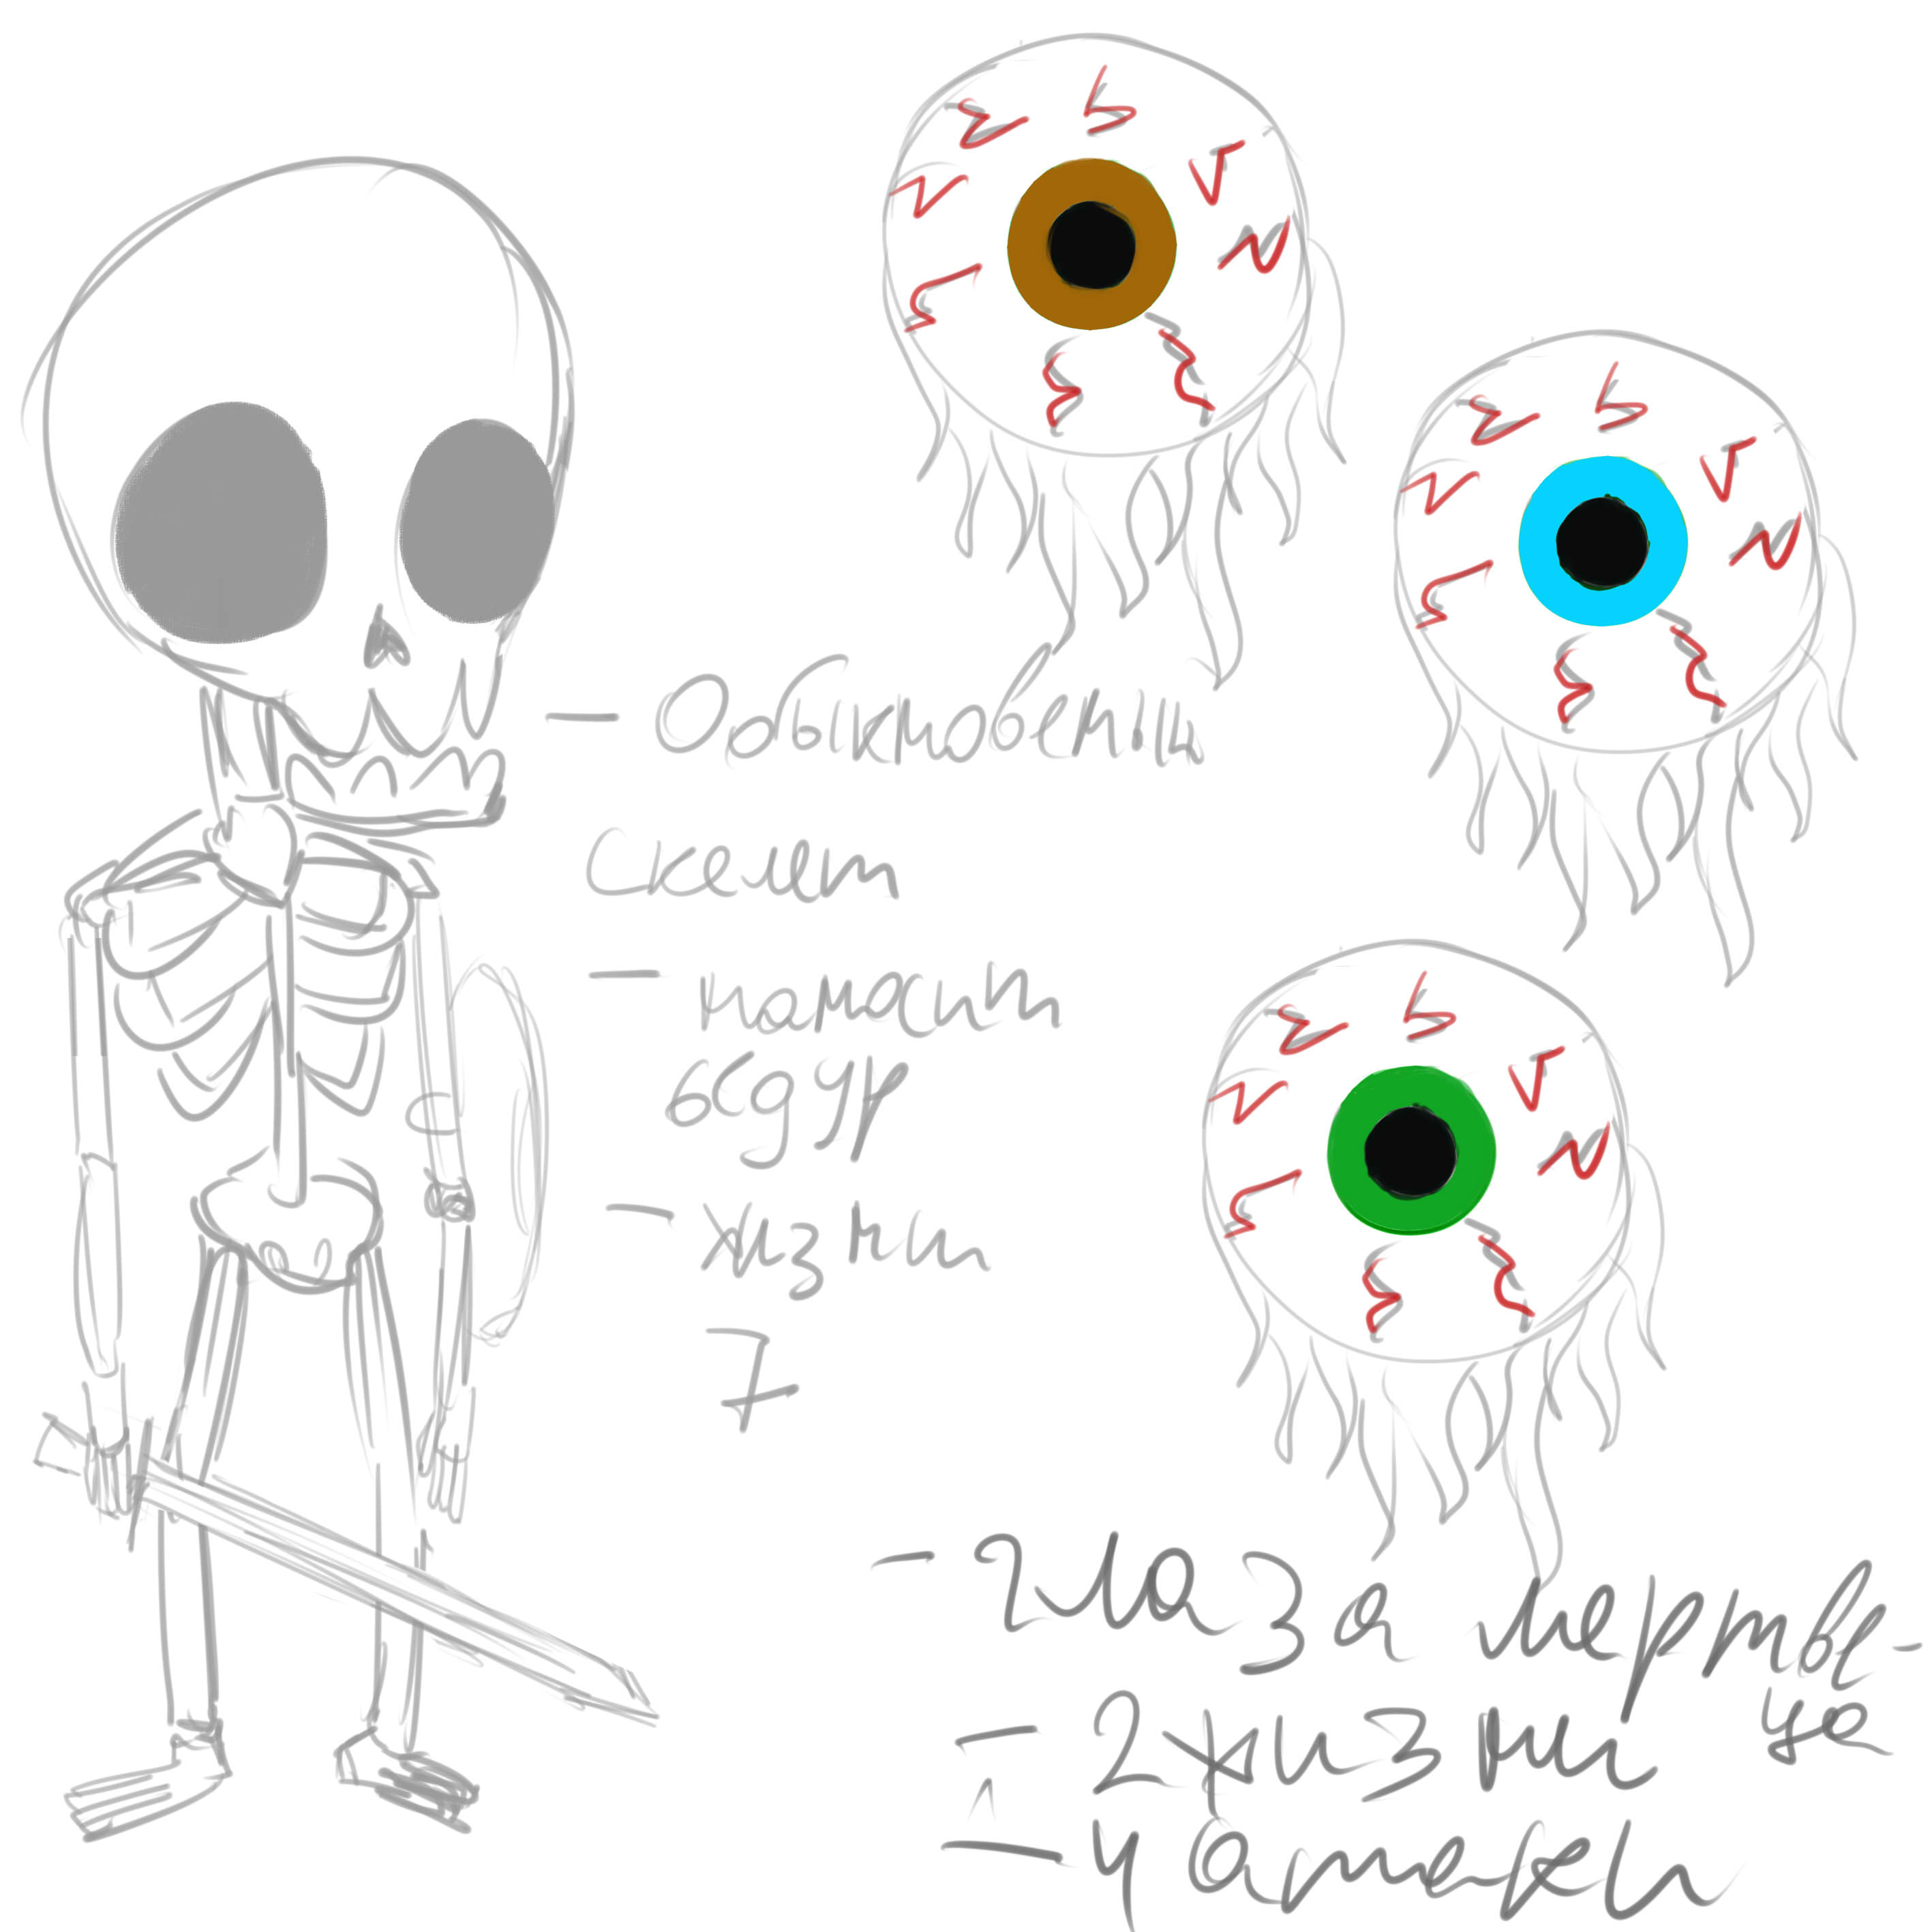 — Обыкновены
Скелет
— наносит
6 ед ур
— жизни
7
— глаза мертве-
ца
— 2 жизни
— 4 атаки